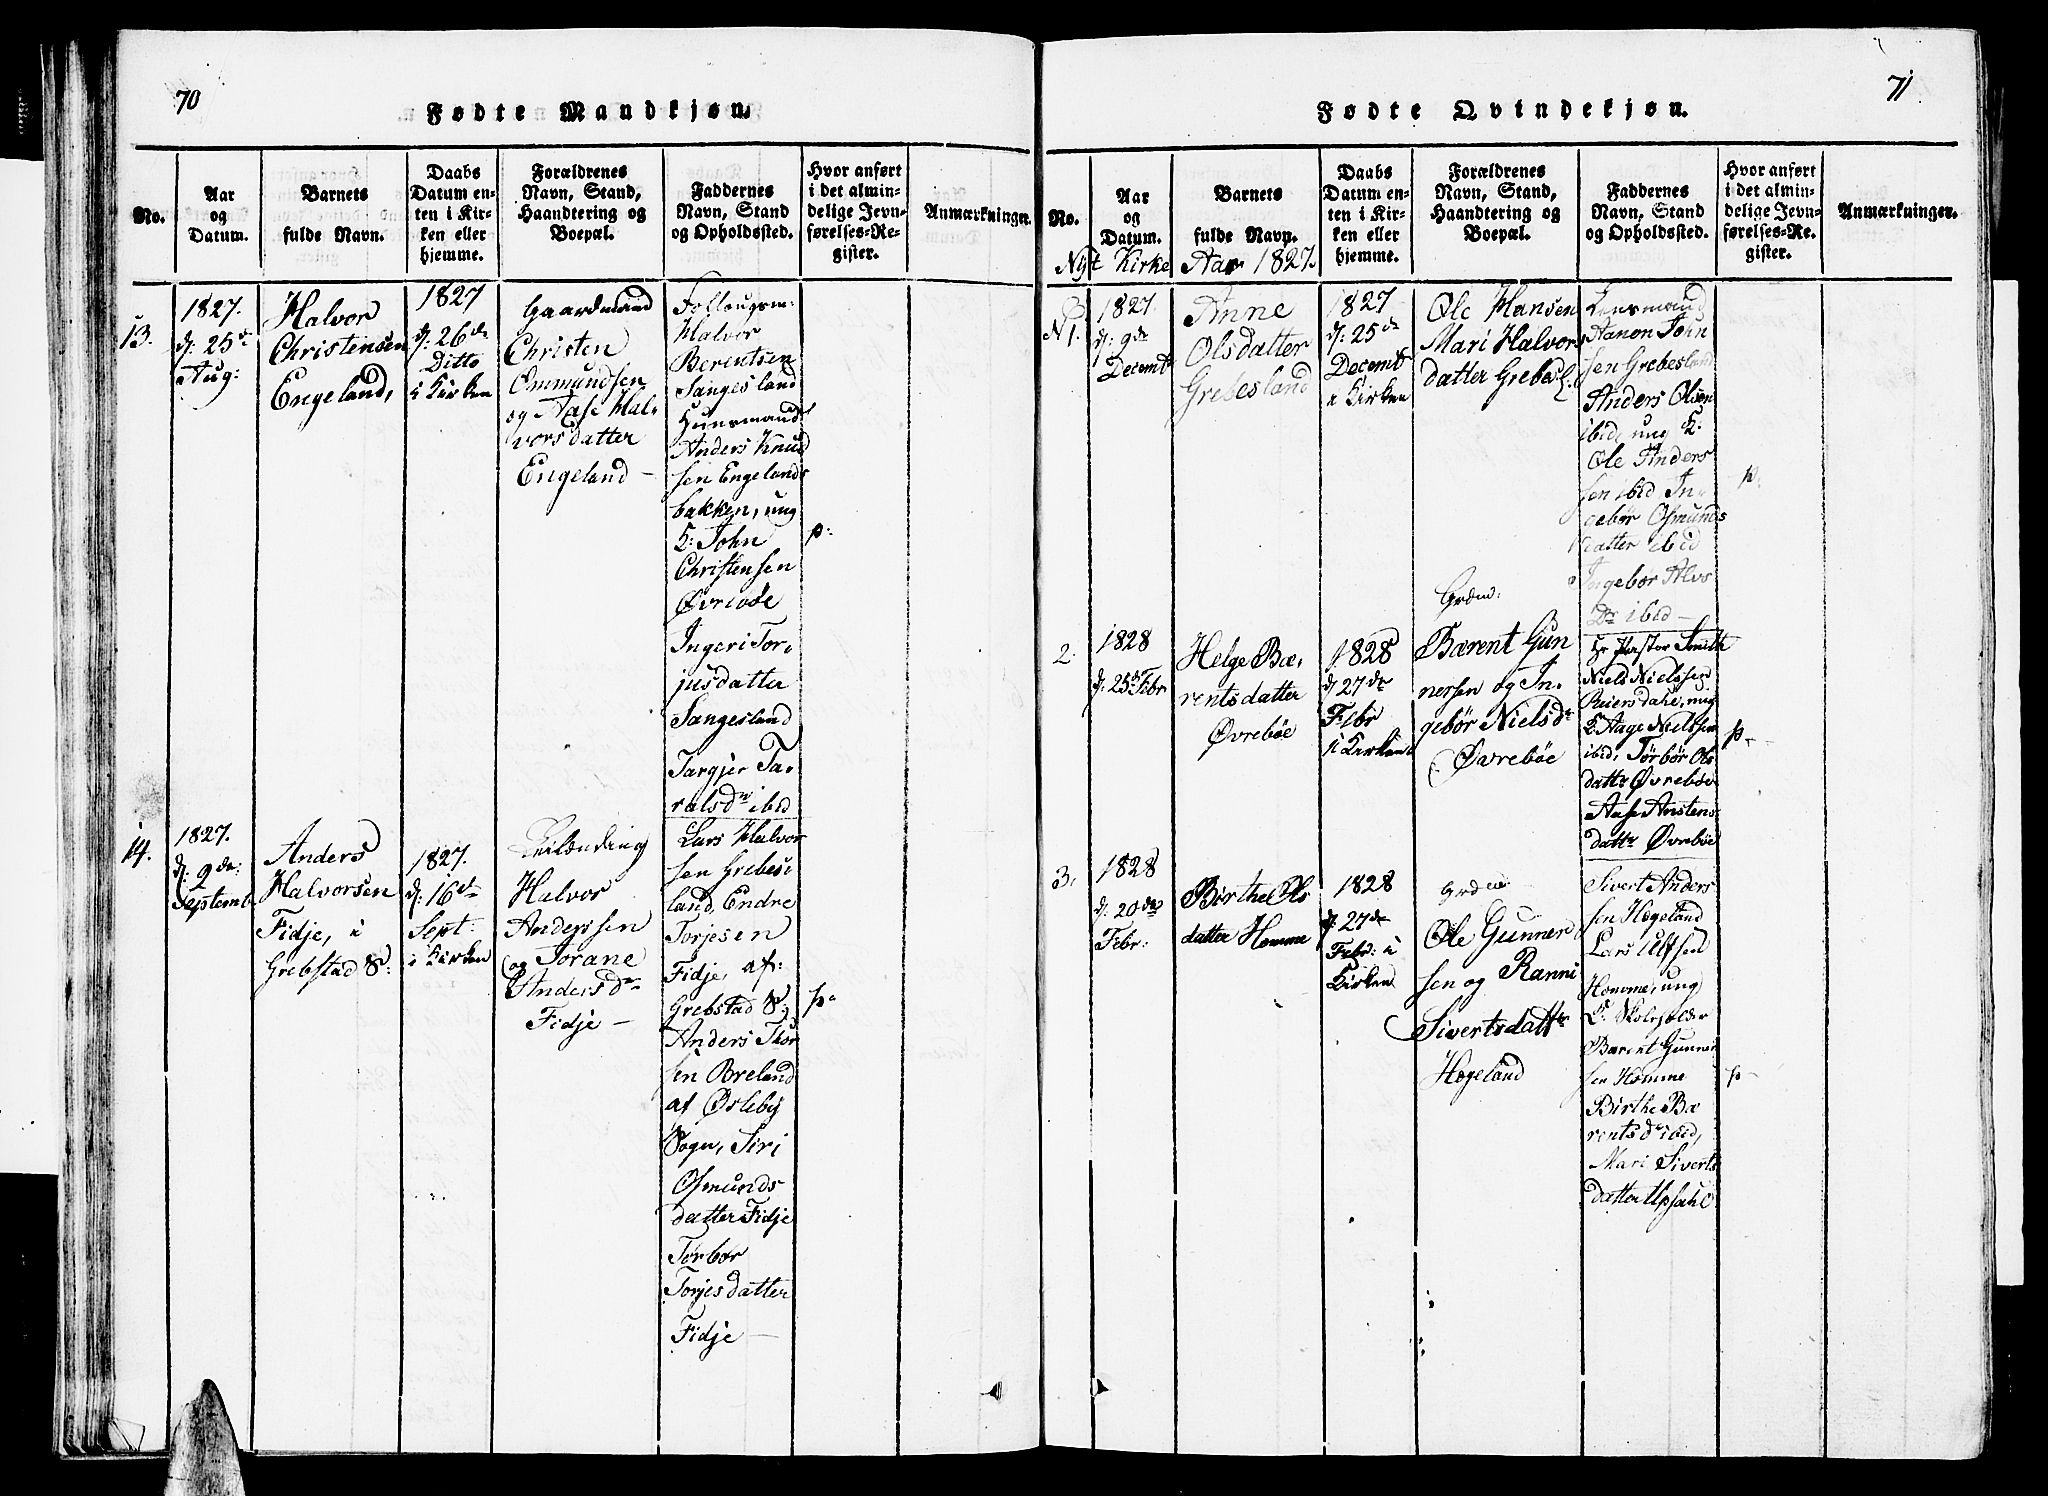 70
Fødte Mandkjøn.
No.
Aar
og
Datum.
Barnets
fulde Navn.
Daabs
Datum en-
ten i Kir-
ken eller
hjemme.
Forældrenes
Navn, Stand,
Haandtering og
Boepæl.
Faddernes
Navn, Stand
og Opholdssted.
Hvor anført
i det almin-
delige Jevn-
førelses-Re-
gister.
Anmærkninger.
13.
1827.
d: 25de
Aug:
Halvor
Christensen
Engeland,
1827
d: 26de
Ditto
i Kirken
Gaardmand
Christen
Ommundsen
og Aase Hal-
vorsdatter
Engeland –
Halvor
Berentsen
Sangesland
Huusmand
Anders Knud
sen Engelands
bakken, ung
K: John
Christensen
Øvrebøe
Ingeri Tor-
jusdatter
Sangesland
Targjer Ta-
ralsdr ibid
p:
14.
1827.
d: 9de
Septemb
Anders
Halvorsen
Fidje, i
Grebstad S:
1827.
d: 16de
Sept:
i Kirken
Leilænding
Halvor
Anderssen
og Torane
Andersdr
Fidje –
Lars Halvor
sen Grebes-
land, Endre
Torjesen
Fidje, af:
Grebstad S:
Anders Thor
sen Breland
af Øsleby
Sogn, Siri
Osmunds
datter Fidje
Torbor
Torjesdatter
Fidje –
p:
71
Fødte Qvindekjøn.
No.
Aar
og
Datum.
Barnets
fulde Navn.
Daabs
Datum en-
ten i Kir-
ken eller
hjemme.
Forældrenes
Navn, Stand,
Haandtering og
Boepæl.
Faddernes
Navn, Stand
og Opholdssted.
Hvor anført
i det almin-
delige Jevn-
førelses-Re-
gister.
Anmærkninger.
Nyt Kirke Aar 1827.
N 1.
1827
d: 9de
Decemb
Anne
Olsdatter
Grebesland
1827
d: 25de
Decemb
i Kirken
Ole Hansen
Mari Halvors
datter Grebesl.
Aanon John
sen Grebesland
Anders Olsen
ibid, ung K:
Ole Anders
sen ibid In-
gebør Osmunds
datter ibid
Ingebor Alvs
Dr ibid –
p.
2.
1828
d: 25de Febr
Helge Bæ-
rentsdatter
Øvrebøe
1828
d 27de
Febr
i Kirken
Grdm:
Bærent Gun
nersen og In-
gebør Nielsdr
Øvrebøe
Hr Pastor Smith
Niels Nielssen
Reiersdahl, ung
K Aage Nielssen
ibid, Tørbør Ols
dattr Øvrebøe
Aase Anstens
dattr Øvrebøe
p –
3.
1828
d: 20de
Febr:
Birthe Ols
datter Homme
1828
d: 27de
Febr: i
Kirken
Ole Gunner
sen og Ranni
Sivertsdattr
Hægeland
Sivert Anders
sen Hægeland
Lars Ulfsen
Homme, ung
K: Skoleholder
Bærent Gunner
sen Homme
Birthe Bæ
rentsdr ibid,
Mari Siverts
datter Upsahl
p –